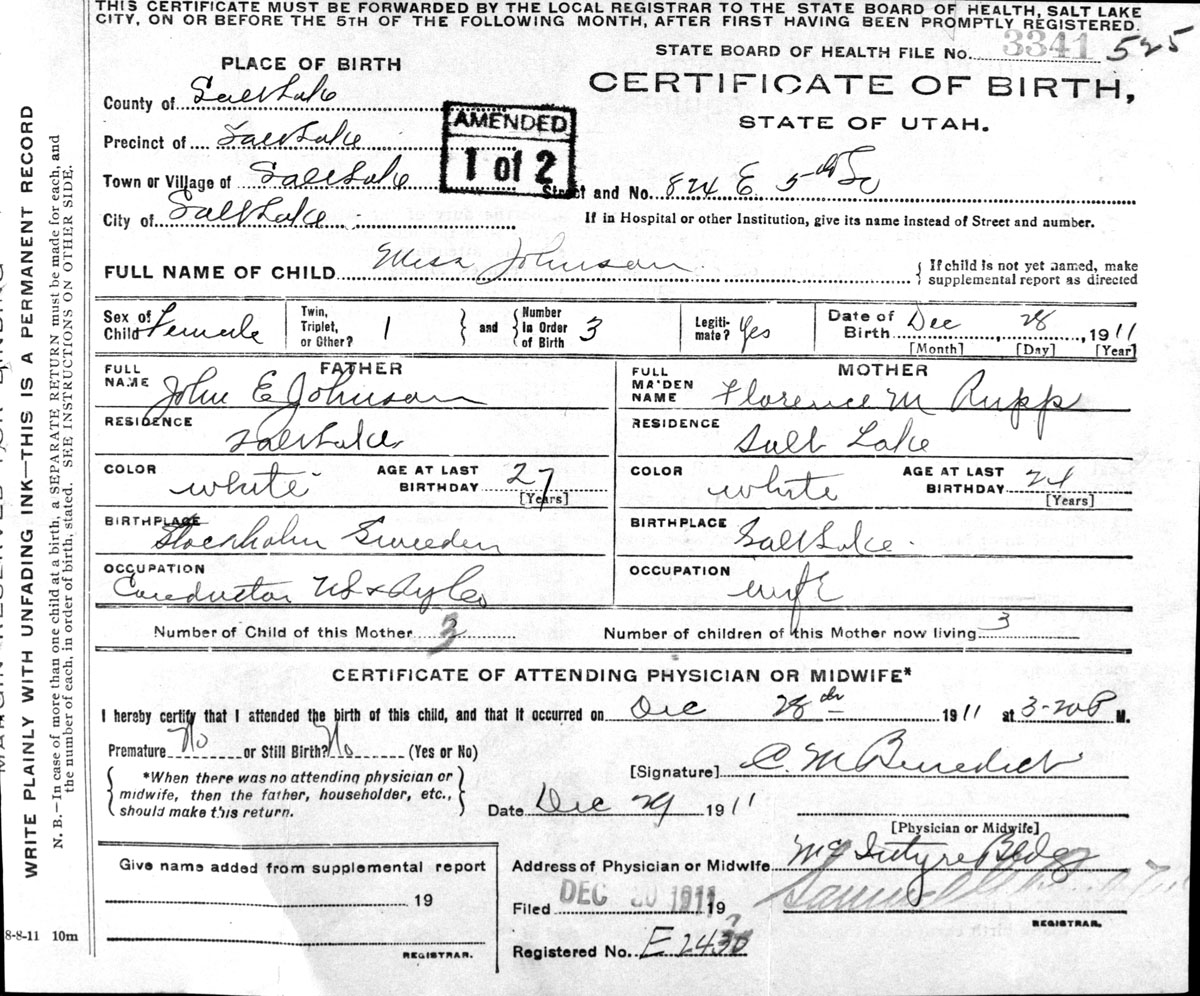 THIS CERTIFICATE MUST BE FORWARDED BY THE LOCAL REGISTRAR TO THE STATE BOARD OF HEALTH, SALT LAKE
CITY, ON OR BEFORE THE 5TH OF THE FOLLOWING MONTH, AFTER FIRST HAVING BEEN PROMPTLY REGISTERED.
STATE BOARD OF HEALTH FILE No. 3341 525
PLACE OF BIRTH
CERTIFICATE OF BIRTH,
STATE OF UTAH.
County of Salt Lake
AMENDED
1 of 2
Precinct of Salt Lake
Town or Village of Salt Lake
Street and No. 824 E. 5th So
City of Salt Lake
If in Hospital or other Institution, give its name instead of Street and number.
FULL NAME OF CHILD Miss Johnson
If child is not yet named, make
supplemental report as directed
Sex of Child Female
Twin, Triplet, or Other? 1
and Number In Order of Birth 3
Legitimate? Yes
Date of Birth Dec 28, 1911
[Month] [Day] [Year]
FATHER
FULL NAME John E Johnson
RESIDENCE Salt Lake
COLOR white
AGE AT LAST BIRTHDAY 27
[Years]
BIRTHPLACE Stockholm Sweeden
OCCUPATION Conductor
MOTHER
FULL MAIDEN NAME Florence M Rupp
RESIDENCE Salt Lake
COLOR white
AGE AT LAST BIRTHDAY 24
[Years]
BIRTHPLACE Salt Lake
OCCUPATION wife
Number of Child of this Mother 3
Number of children of this Mother now living 3
CERTIFICATE OF ATTENDING PHYSICIAN OR MIDWIFE*
I hereby certify that I attended the birth of this child, and that it occurred on Dec 28th 1911 at 3-20 P M.
Premature No or Still Birth? No (Yes or No)
*When there was no attending physician or
midwife, then the father, householder, etc.,
should make this return.
[Signature] C. M Benedict
Date Dec 29 1911
[Physician or Midwife]
Give name added from supplemental report
19
REGISTRAR.
Address of Physician or Midwife McIntyre Bldg
Filed DEC 30 1911 19
REGISTRAR.
Registered No. E 243
8-8-11 10m
WRITE PLAINLY WITH UNFADING INK—THIS IS A PERMANENT RECORD
N. B.—In case of more than one child at a birth, a SEPARATE RETURN must be made for each, and
the number of each, in order of birth, stated. SEE INSTRUCTIONS ON OTHER SIDE.